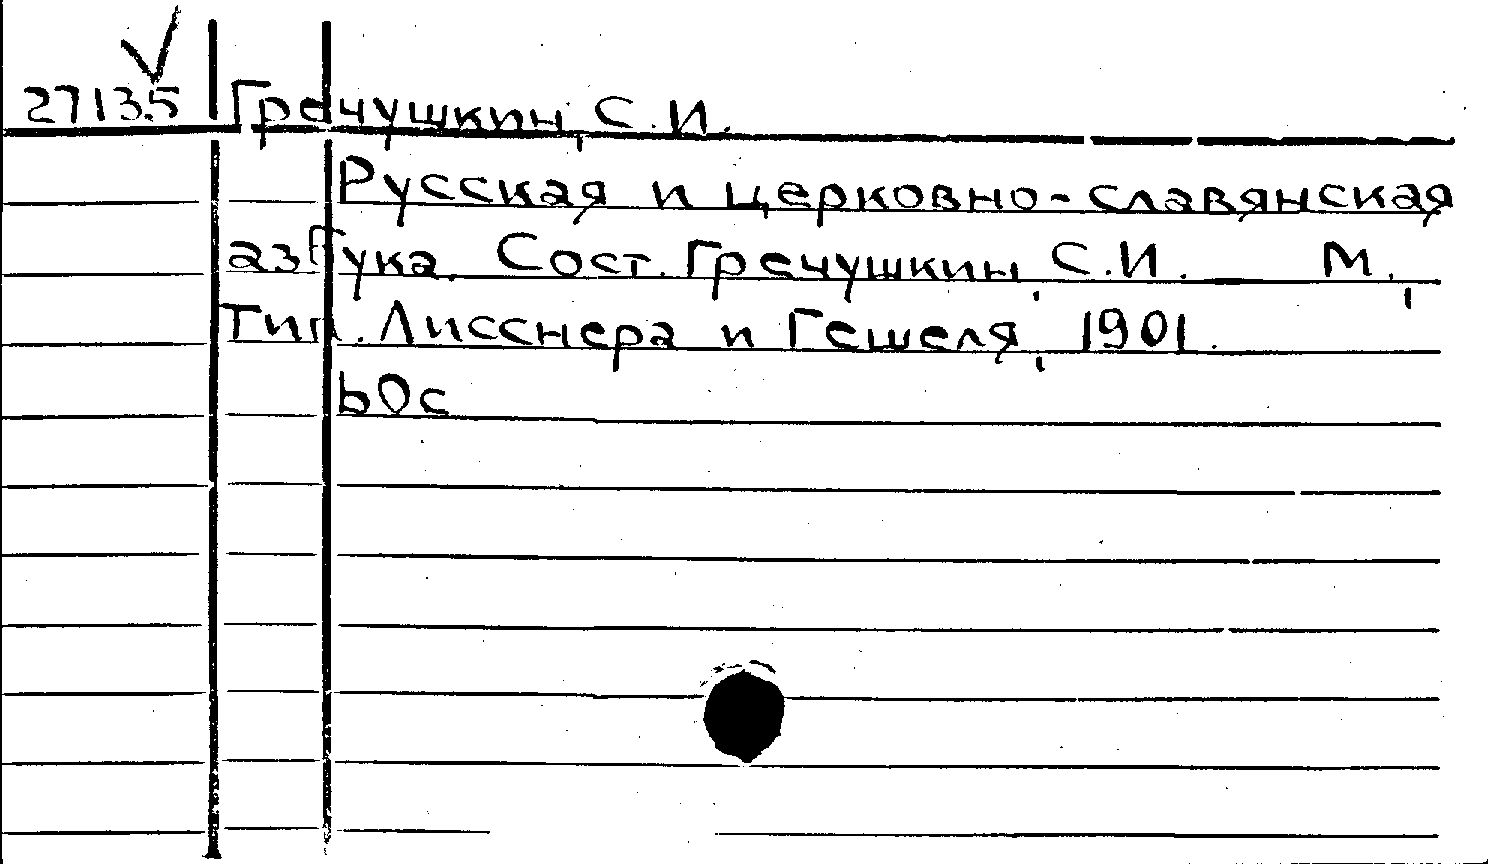 27135 Гречушкин, С.И.
Русская и церковно-славянская
азбука. Сост. Гречушкин, С.И. М.,
Тип. Лисснера и Гешеля, 1901.
60с